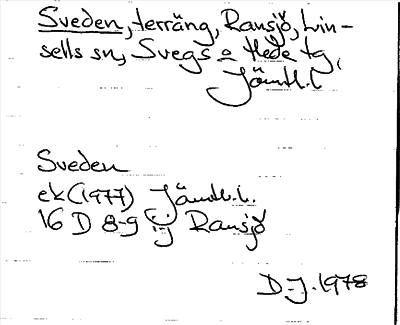 Sveden, terräng, Ransjö, Lin-
sells sn, Svegs o Hede tg,
Jämtl.l
Sveden
ek (1977) Jämtl.l.
16 D 8-9 i-j Ransjö
D-J. 1978